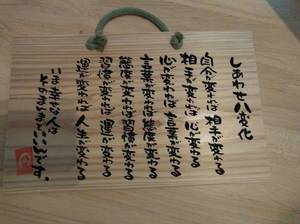 しあわせ八変化
自分が変われば 相手が変わる
相手が変われば 心が変わる
心が変われば 言葉が変わる
言葉が変われば 態度が変わる
態度が変われば 習慣が変わる
習慣が変われば 運が変わる
運が変われば 人生が変わる